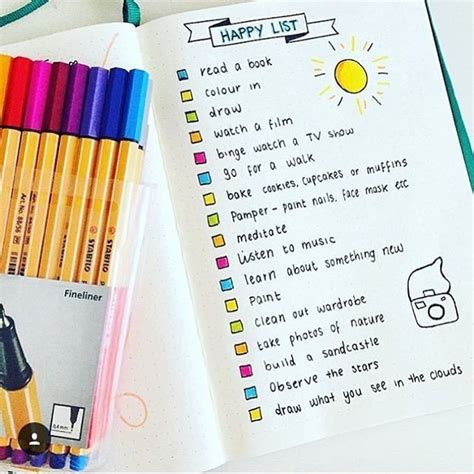 HAPPY LIST
read a book
colour in
draw
watch a film
binge watch a TV show
go for a walk
bake cookies, cupcakes or muffins
Pamper - paint nails, face mask etc
meditate
Listen to music
learn about something new
Paint
clean out wardrobe
take photos of nature
build a sandcastle
Observe the stars
draw what you see in the clouds
STABILO
STABILO
STABILO
Fineliner
0,4 mm